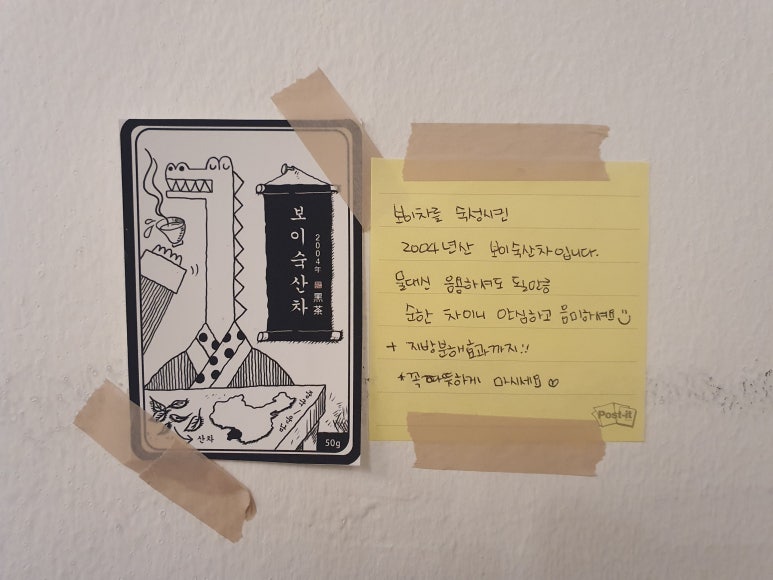 보이숙산차
2004年 黑茶
산차
50g
보이차를 숙성시킨
2004년산 보이숙산차입니다.
물대신 음용하셔도 될만큼
순한 차이니 안심하고 음미하세요
+ 지방분해효과까지!!
*꼭 따뜻하게 마시세요 ♡
Post-it